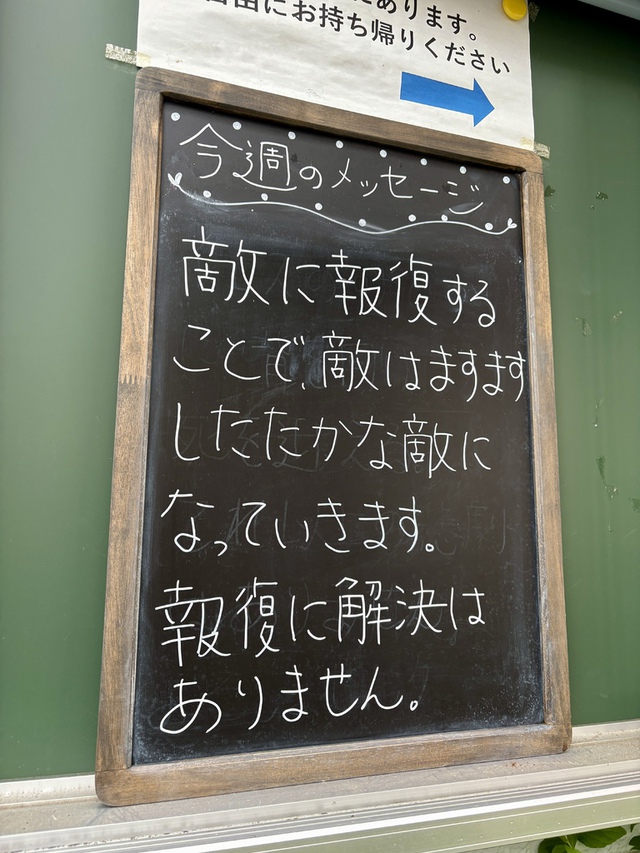 にあります。
自由にお持ち帰りください
今週のメッセージ
敵に報復する
ことで、敵はますます
したたかな敵に
なっていきます。
報復に解決は
ありません。